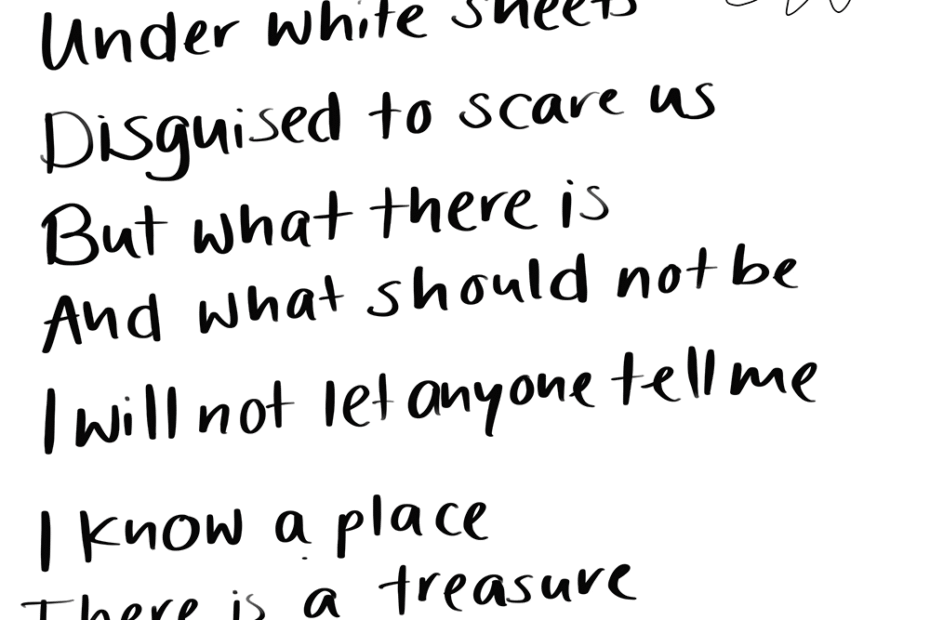 Under white sheets
Disguised to scare us
But what there is
And what should not be
I will not let anyone tell me
I know a place
There is a treasure